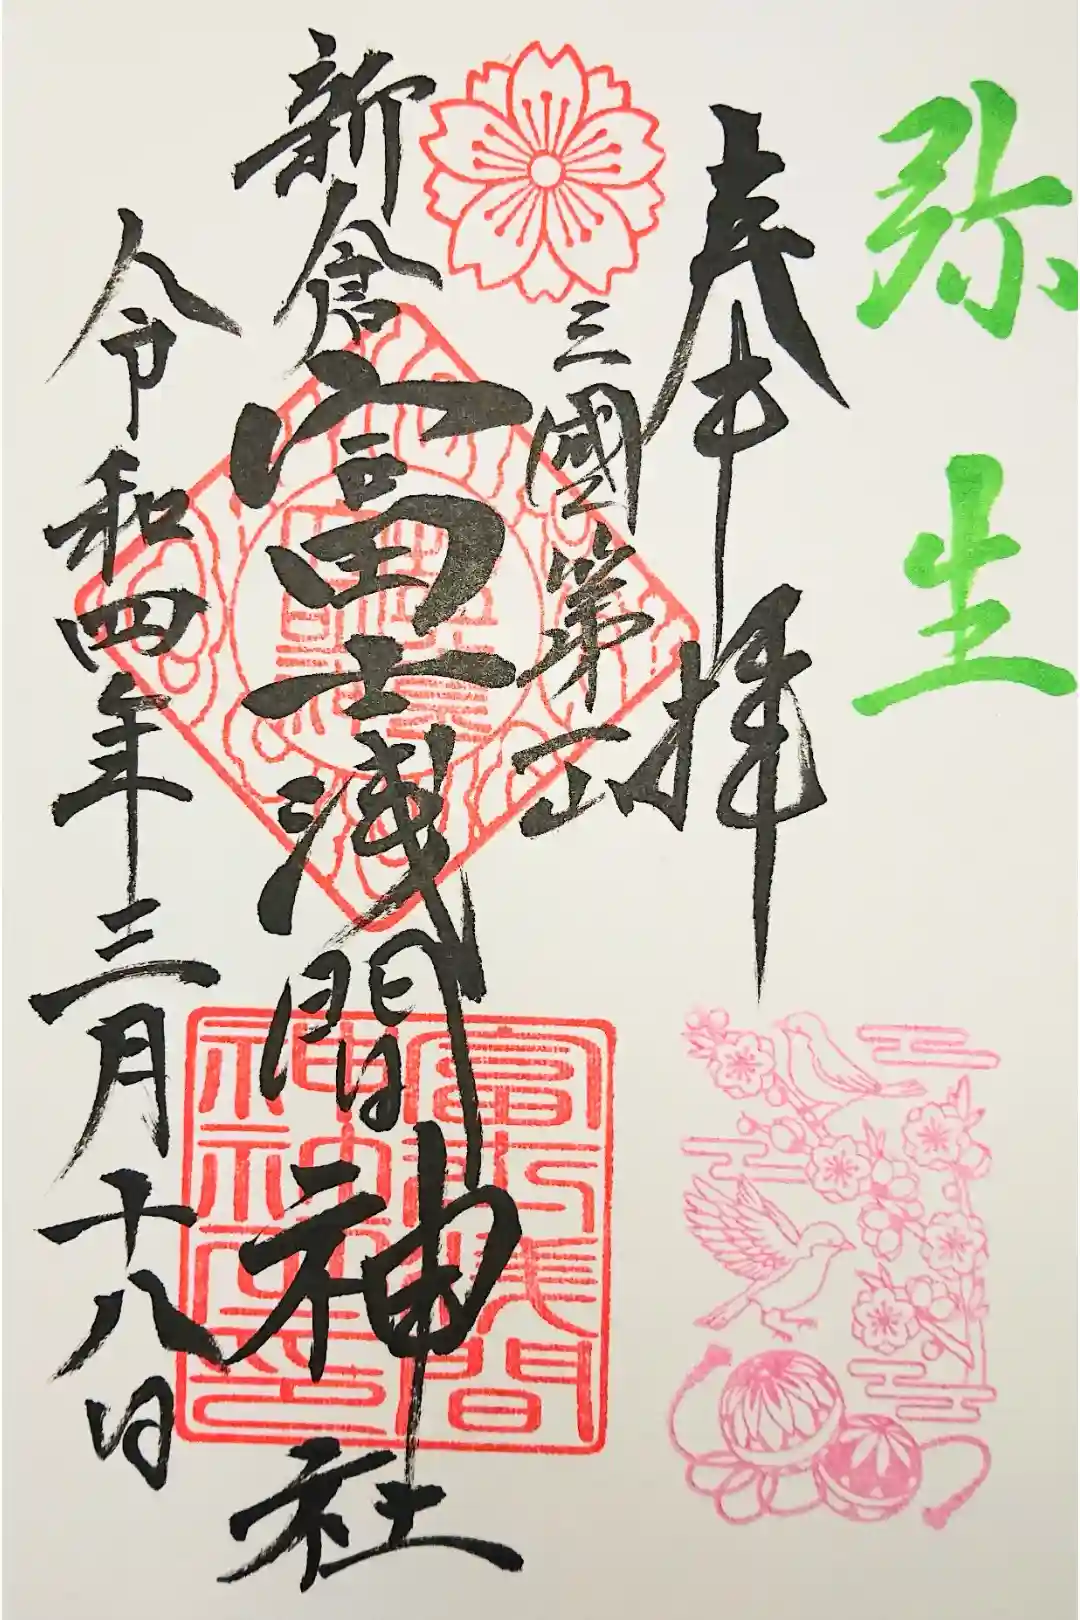 弥生
奉拝
三國第一山
新倉富士浅間神社
令和四年三月十八日
富士浅間
神社之印